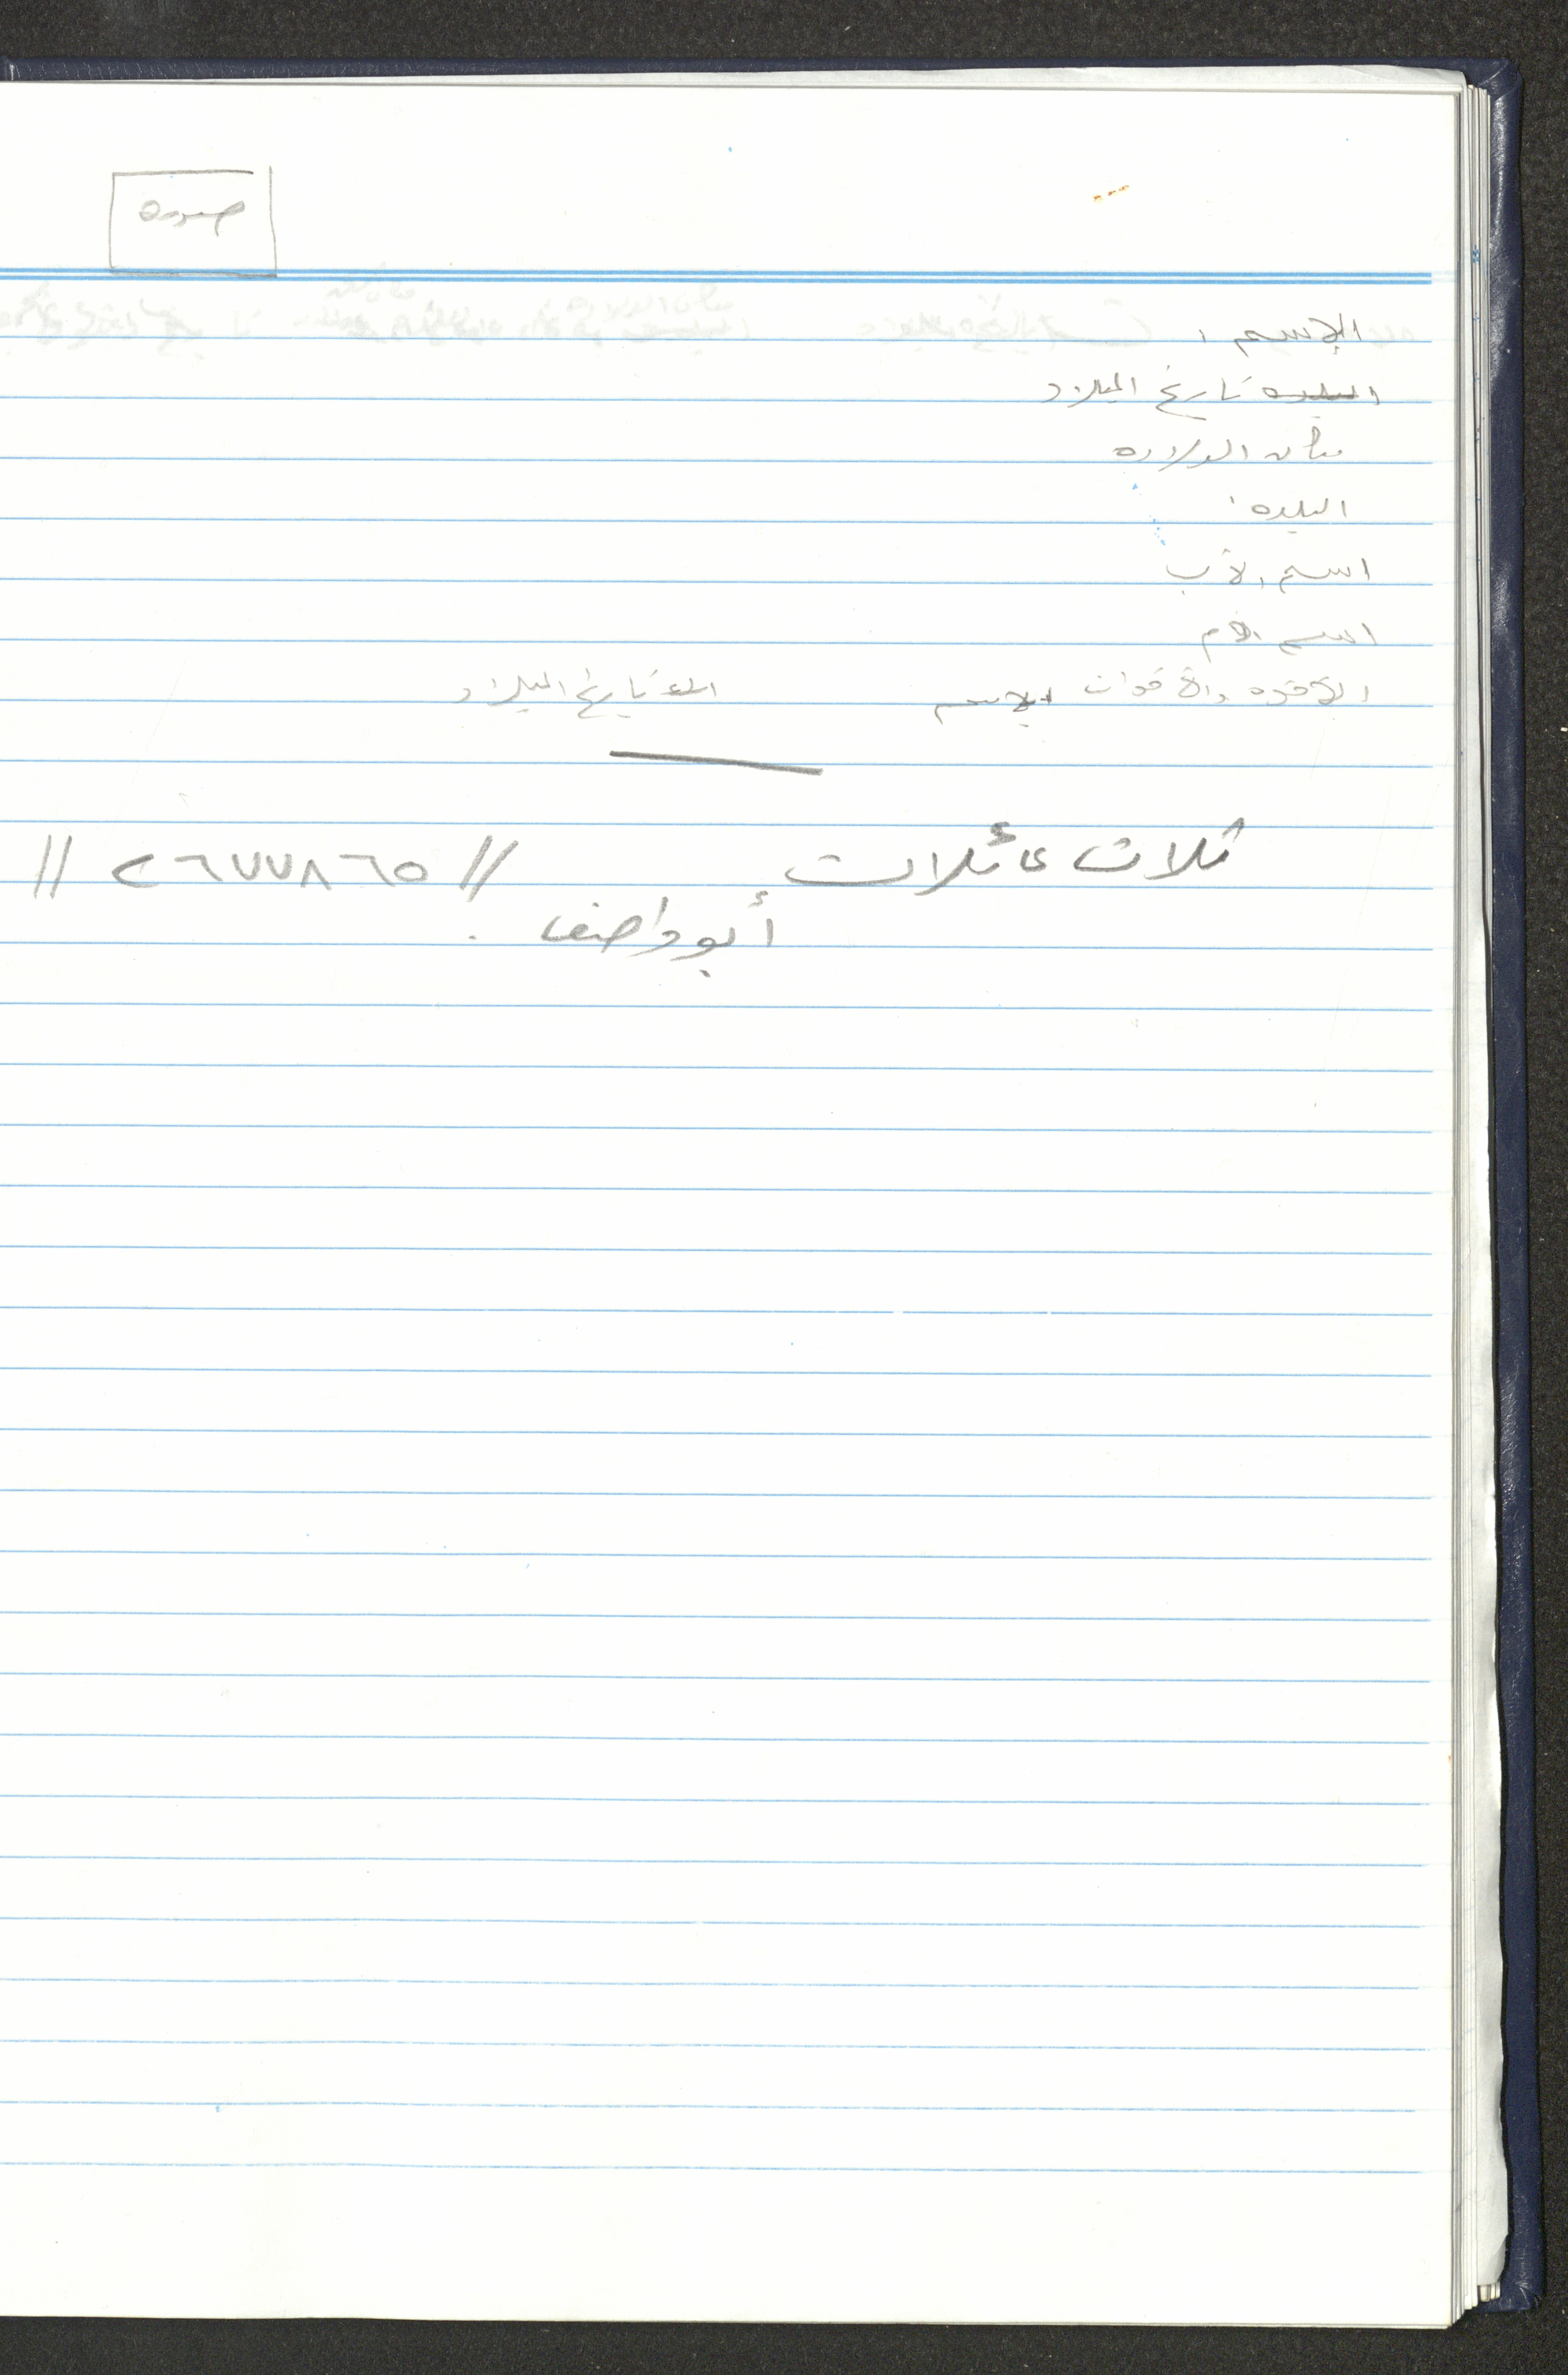 صورة
الإسم :
البلده تاريخ الميلاد
مكان الولاده
البلده :
اسم الأب
اسم الأم
الأخوه والأخوات الإسم تاريخ الميلاد
ثلاث عائلات // ٢٦٧٧٨٦٥ //
أبو واصف .